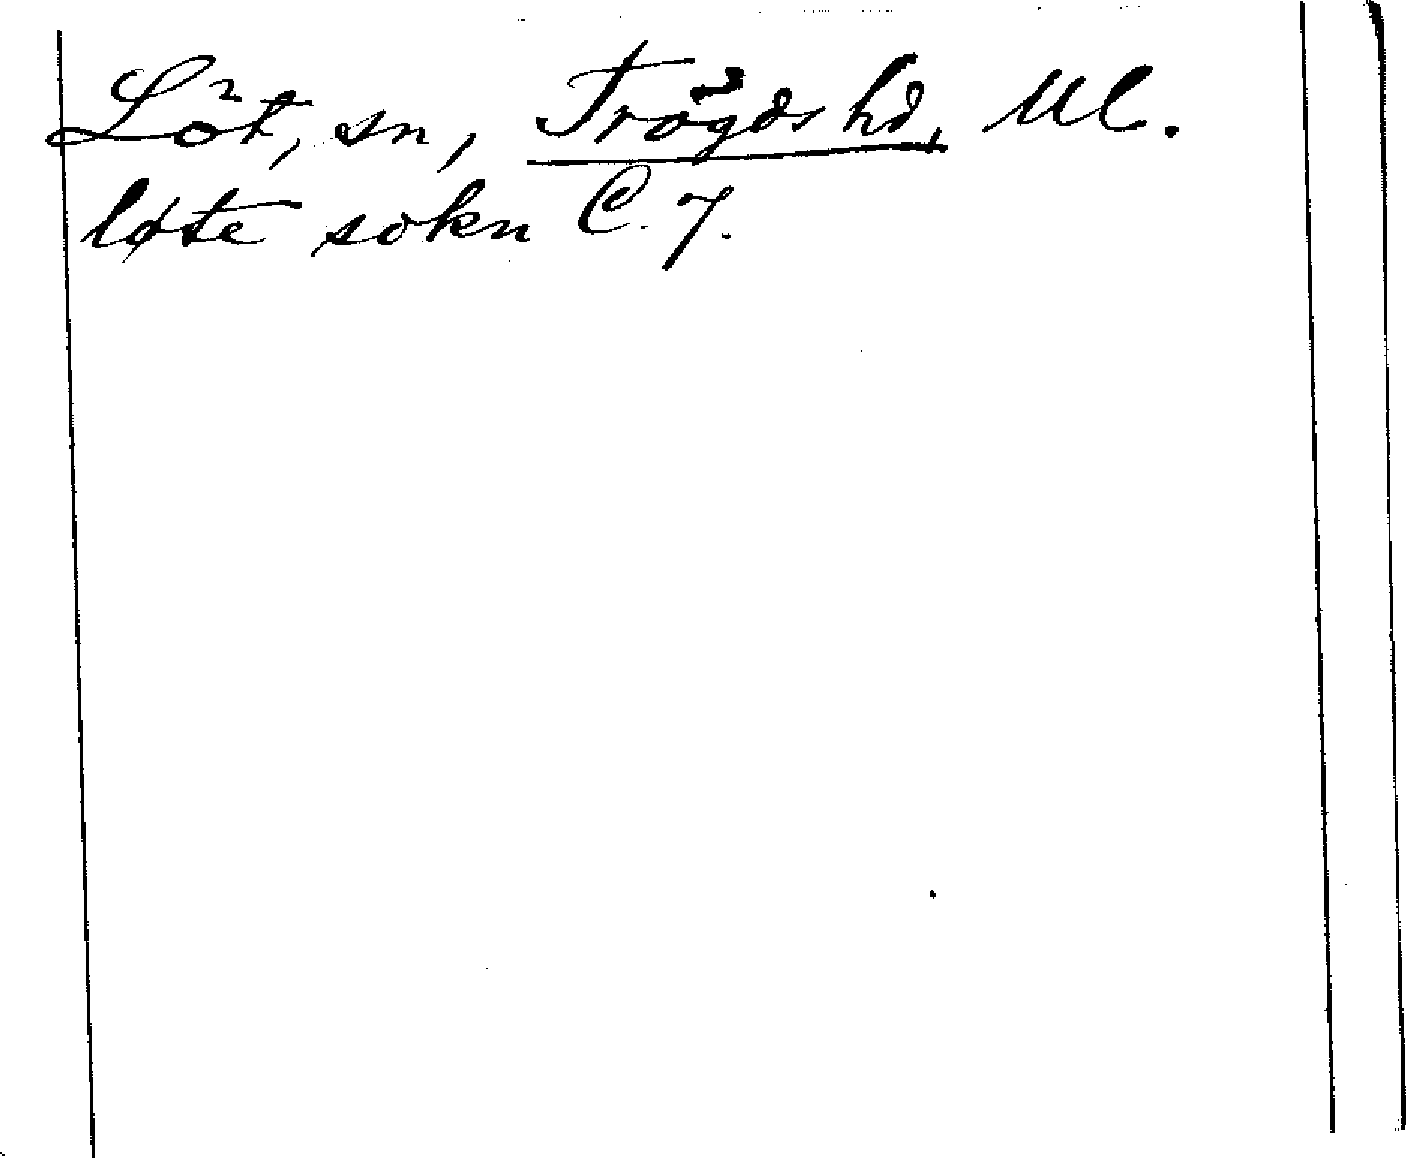 Löt, sn, Trögds hd, Ul.
løte sokn C. 7.